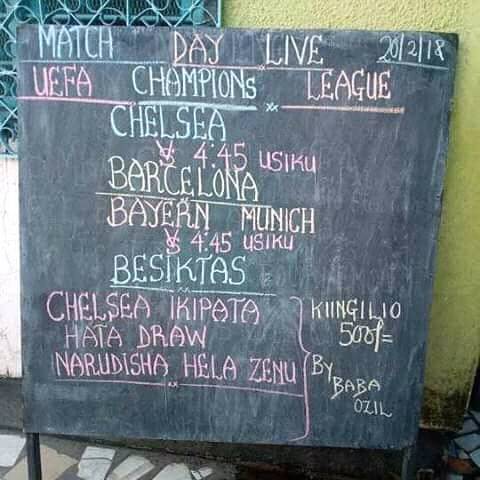 MATCH DAY LIVE 20/2/18
UEFA CHAMPIONs LEAGUE
CHELSEA
VS 4:45 USIKU
BARCELONA
BAYERN MUNICH
VS 4:45 USIKU
BESIKTAS
CHELSEA IKIPATA
HATA DRAW
NARUDISHA HELA ZENU
KIINGILIO
500/=
By BABA
OZIL